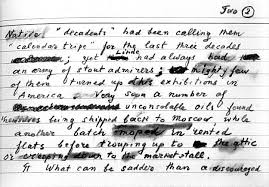 Two ②
Native "decadents" had been calling them
"calendar tripe" for the last three decades
; yet Linde had always had
an army of stout admirers; mighty few
of them turned up his exhibitions in
America. Very soon a number of
unconsolable oils found
themselves being shipped back to Moscow, while
another batch moped in rented
flats before trouping up to the attic
or creeping down to the market stall.
¶ What can be sadder than a discouraged